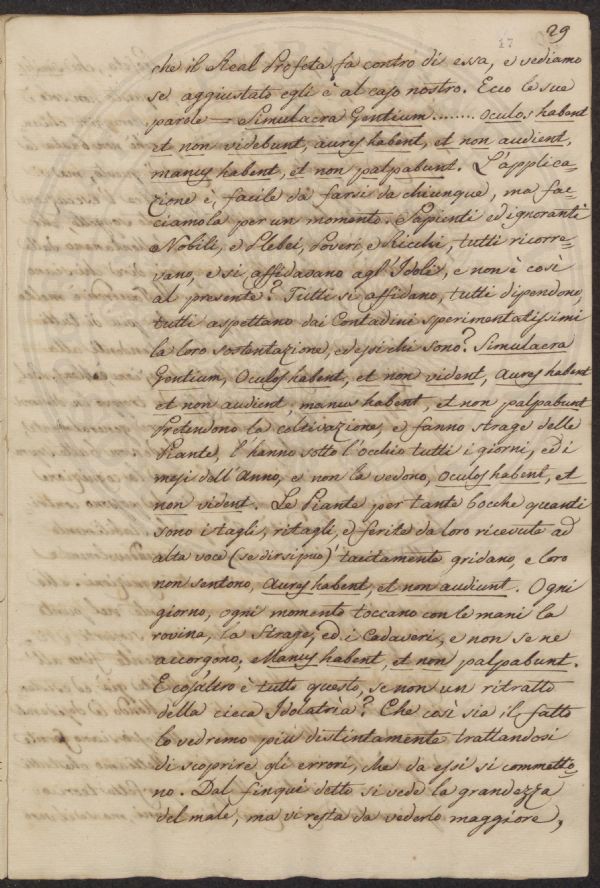 29
17
che il Real Profeta fa contro di essa, e vediamo
se aggiustato egli è al caso nostro. Ecco le sue
parole = Simulacra Gentium ........ oculos habent
et non videbunt, aures habent, et non audient,
manus habent, et non palpabunt. L'applica=
zione è, facile da farsi da chiunque, ma fac=
ciamola per un momento. Sapienti ed ignoranti
Nobili, e Plebei, Poveri, e Ricchi, tutti ricorre=
vano, e si affidavano agl'Idoli, e non è così
al presente? Tutti si affidano, tutti dipendono,
tutti aspettano dai Contadini sperimentatissimi
la loro sostentazione, ed essi chi sono? Simulacra
Gentium, Oculos habent, et non vident, aures habent
et non audient, manus habent, et non palpabunt
Pretendono la coltivazione, e fanno strage delle
Piante, l'hanno sotto l'occhio tutti i giorni, ed i
mesi dell'Anno, e non la vedono, oculos habent, et
non vident. Le Piante per tante bocche quanti
sono i tagli, ritagli, e ferite da loro ricevute ad
alta voce (se dirsi può) tacitamente gridano, e loro
non sentono, aures habent, et non audiunt. Ogni
giorno, ogni momento toccano con le mani la
rovina, la Strage, ed i Cadaveri, e non se ne
accorgono, Manus habent, et non palpabunt.
E cos'altro è tutto questo, se non un ritratto
della cieca Idolatria? Che così sia il fatto
lo vedremo più distintamente trattandosi
di scoprire gli errori, che da essi si commetto=
no. Dal finquì detto si vede la grandezza
del male, ma vi resta da vederlo maggiore,